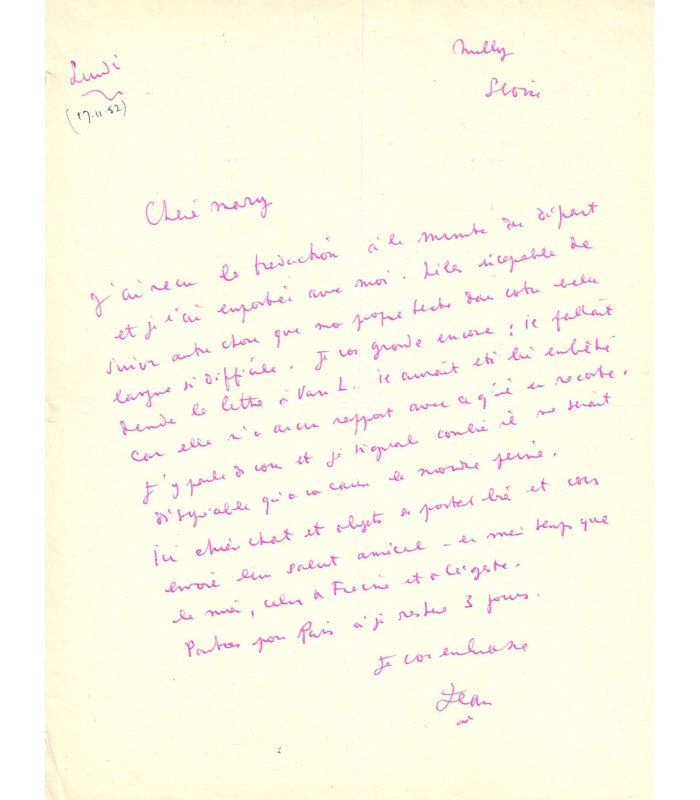 Lundi
(17.11.52)
Milly
S et Oise
Chère Mary
J'ai reçu la traduction à la minute du départ
et je l'ai emportée avec moi. incapable de
suivre autre chose que mon propre texte dans votre belle
langue si difficile. Je vous gronde encore : il fallait
la lettre à Van L. il aurait été bien embêté
car elle n'a aucun rapport avec ce qu'il en raconte.
J'y parle de vous et je signale combien il me serait
désagréable qu'on vous cause la moindre peine.
Ici chien chat et objets se portent bien et vous
envoie leur salut amical - en même temps que
le mien, celui de Francine et de
pour Paris où je resterai 3 jours.
Je vous embrasse
Jean